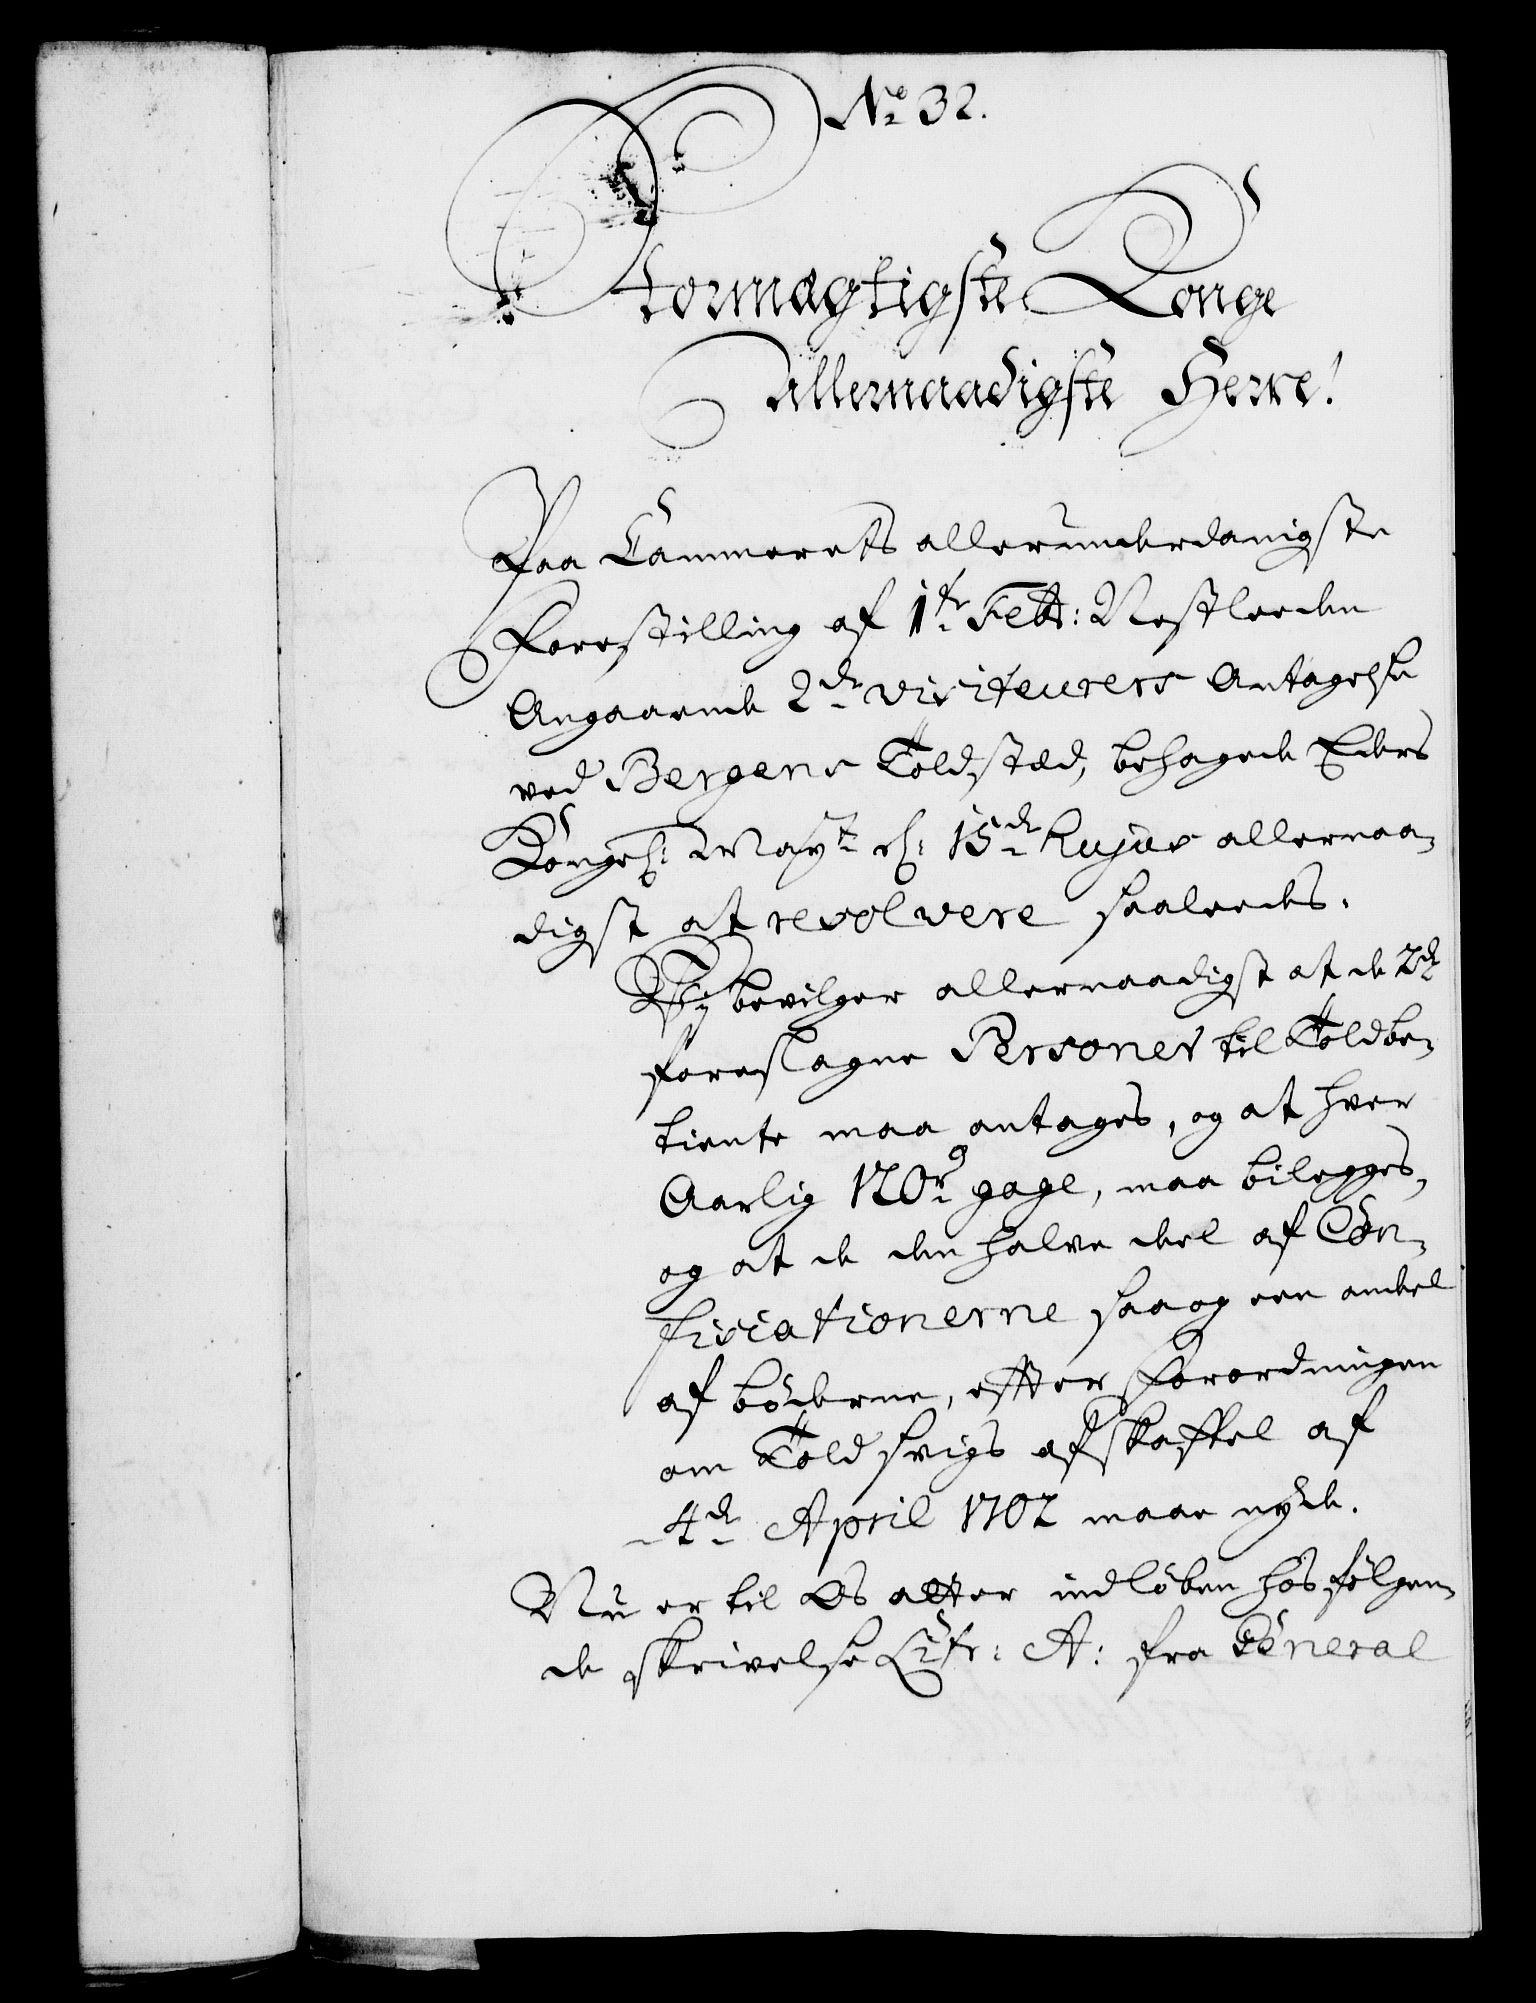 No 32.
Stormægtigste Konge
allernaadigste Herre!
Paa Cammerets allerunderdanigste
Forestilling af 1te Febr: Nestleeden
Angaaende 2de visiteurers Antagelse
ved Bergens Toldsted, behagede Eders
Kongel: Mayt d: 15de hujus allernaa-
digst at resolvere saaleedes.
Vj bevilger allernaadigst at de 2de
foreslagne Personer til Toldbe-
tiente maa antages, og at hver
Aarlig 120 rd gage, maa bilegges,
og at de den halve deel af Con-
fiscationerne saa og een andeel
af böderne, efter Forordningen
om Told svigs afskaffel af
4de April 1702 maae nyde.
Nu er til Os atter indlöben hos fölgen-
de skrivelse Litr: A: fra General